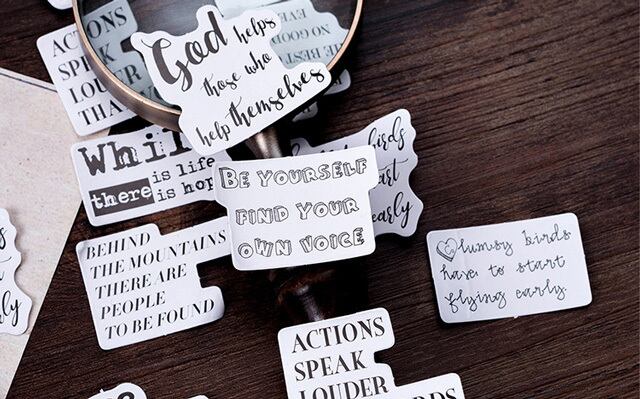 ACTIONS
SPEAK
LOUDER
THA
God helps
those who
help themselves
NO GOOD
BEST
Whil
there is life
is hop
BE YOURSELF
FIND YOUR
OWN VOICE
birds
art
early
BEHIND
THE MOUNTAINS
THERE ARE
PEOPLE
TO BE FOUND
Clumsy birds
have to start
flying early.
ACTIONS
SPEAK
LOUDER
RDS